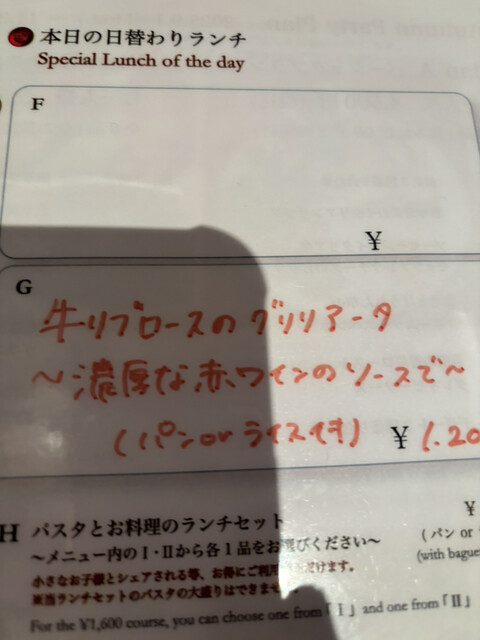 本日の日替わりランチ
Special Lunch of the day
F
¥
G
牛リブロースのグリリアータ
〜濃厚な赤ワインのソースで〜
(パンorライス付) ¥ 1.20
H パスタとお料理のランチセット ¥
〜メニュー内のⅠ・Ⅱから各1品をお選びください〜 (パン or
(with bague
小さなお子様とシェアされる等、お得にご利用いただけます。
※当ランチセットのパスタの大盛りはできません。
For the ¥1,600 course, you can choose one from「Ⅰ」and one from「Ⅱ」